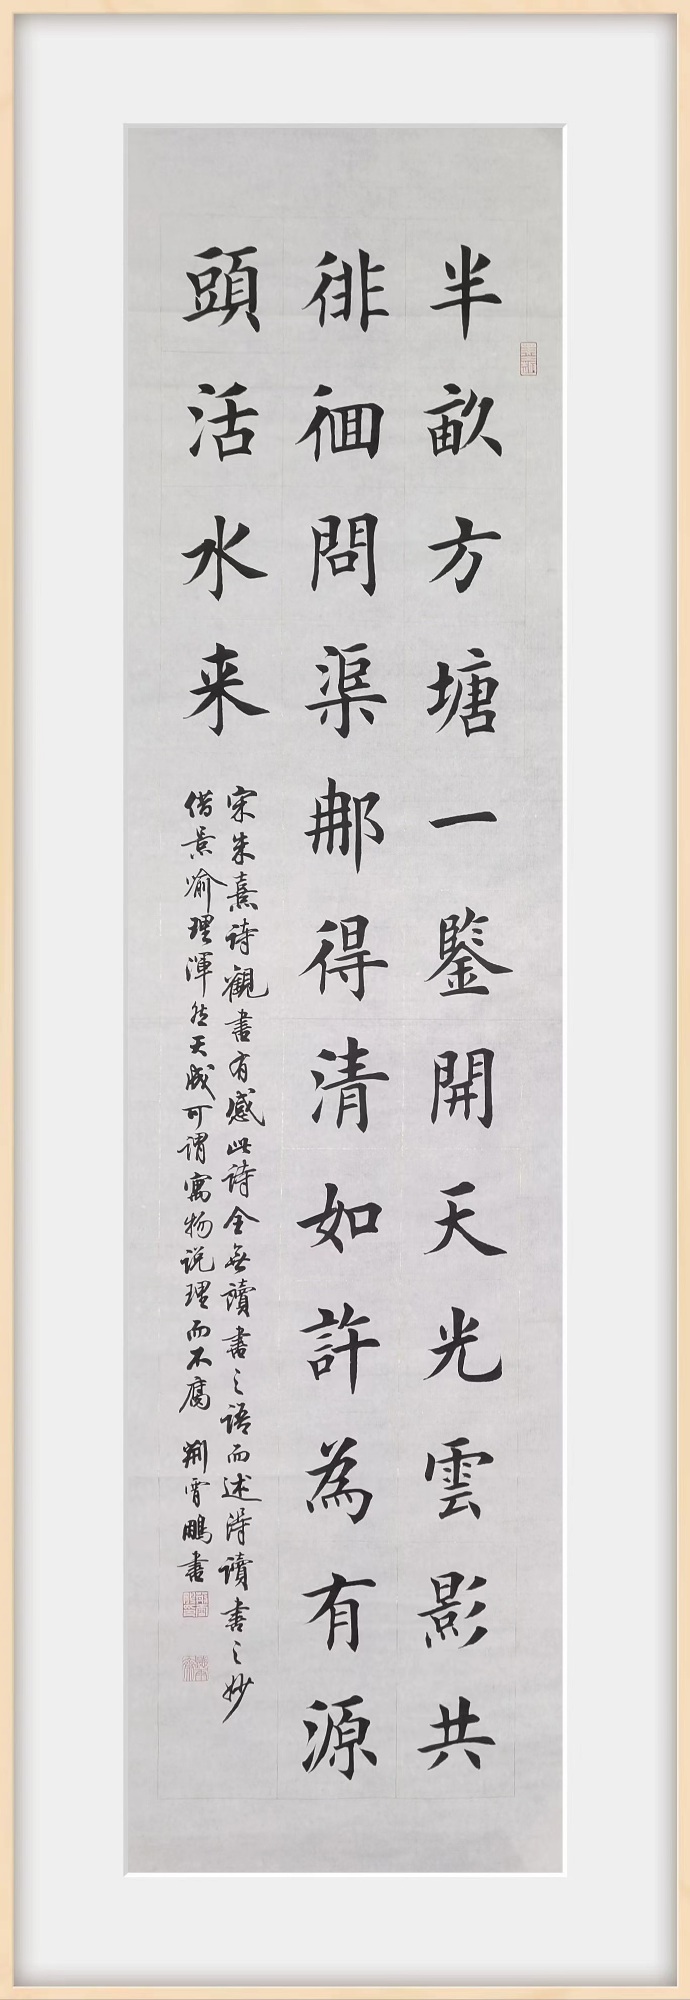 半畝方塘一鑒開天光雲影共
徘徊問渠那得清如許為有源
頭活水来
宋朱熹詩觀書有感此詩全無讀書之語而述得讀書之妙
借景喻理渾然天成可謂寓物说理而不腐 荆霄鵬書